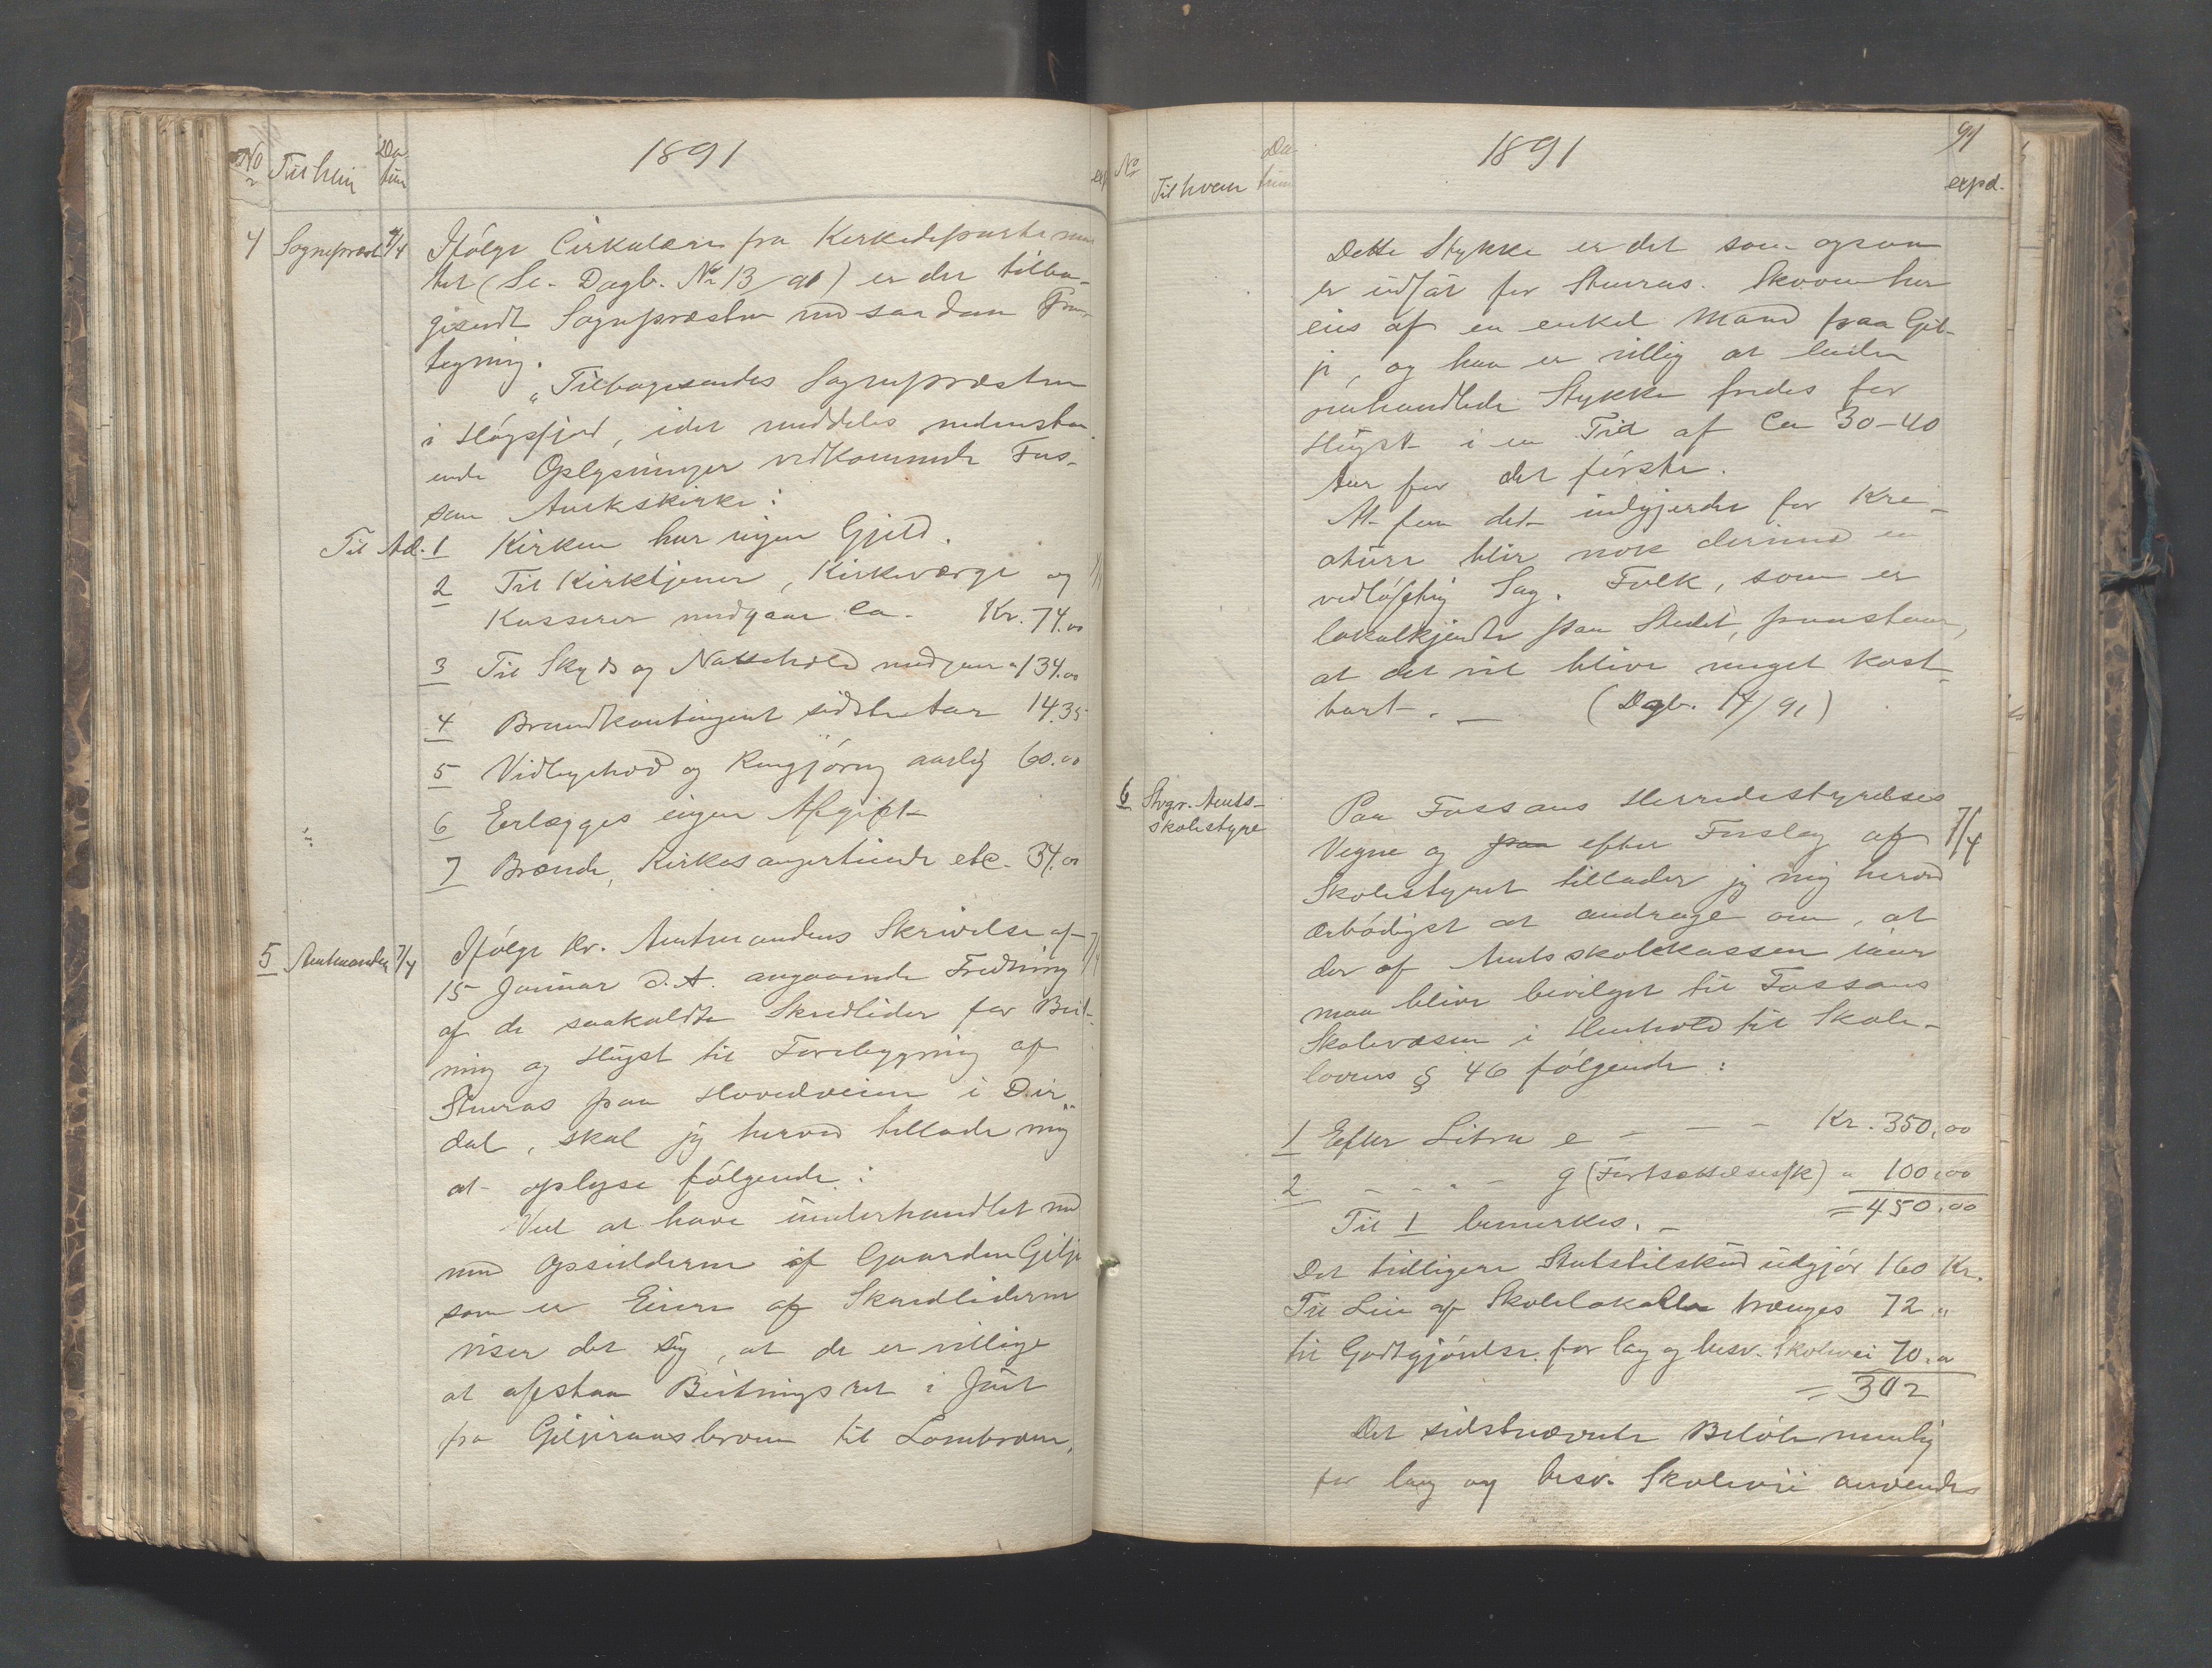 No Til hvem Da-
tum 1891 exp
4 Sogneprest 4/4 Ifølge Cirkulære fra Kirkedepartemen
tet (Se. Dagb. No 13/91) er der tilba-
gesendt Sognepræsten med saadan Paa-
tegning.
"Tilbagesendes Sognepræsten
i Høgsfjord, idet meddeles nedenstaa-
ende Oplysninger vedkommende Fos-
san Anekskirke:
Til Ad. 1 Kirken har ingen Gjeld.
2 Til Kirketjener, Kirkeværge og
Kasserer medgaar Ca. Kr. 74.00
3 Til Skyds og Nattehold medgaar " 134.00
4 Brandkontingent sidste Aar 14.35
5 Vidligehold og Rengjøring aarlig 60.00
6 Erlægges ingen Afgift
7 Brænde, Kirkesangertiende etc. 34.00
5 Amtmanden 7/4 Ifølge Hr. Amtmandens Skrivelse af 7/4
15 Januar d. A. angaaende Fredning
af de saakaldte Skredlider for Beit-
ning og Hugst til Forebyggning af
Stenras paa Hovedveien i Dir-
dal, skal jeg herved tillade mig
at oplyse følgende:
Ved at have underhandlet med
med Opsidderne af Gaarden Gilje
som er Eiere af Skredliderne
viser det sig, at de er villige
at afstaa Beitningsret i Juvet
fra Giljeraasbroen til Lombroen,
No Til hvem Da-
tum 1891 91
expd.
Dette Stykke er det som ogsaa
er udsat for Stenras. Skoven her
eies af en enkel Mand paa Gil-
je, og han er villig at lade
omhandlede Stykke fredes for
Hugst i en Tid af Ca 30-40
Aar for det første.
At faa det indgjerdet for Kre-
aturer blir nok derimod en
vidløftig Sag. Folk, som er
lokalkjendte paa Stedet, paastaar,
at det vil blive meget kost-
bart. — (Dagb. 14/91)
6 Stvgr. Amts-
skolestyre
Paa Fossans Herredsstyrelses
Vegne og paa efter Forslag af 7/4
Skolestyret tillader jeg mig herved
ærbødigst at andrage om, at
der af Amtsskolekassen iaar
maa blive bevilget til Fossans
Skolevæsen i Henhold til Skole-
lovens § 46 følgende:
1 Efter Litra e — — — Kr. 350,00
2 — - " - g (Fortsættelsessk) " 100,00
= 450,00
Til 1 bemerkes. —
Det tidligere Statstilskud udgjør 160 Kr.
Til Leie af Skolelokaller trænges 72 "
til Godtgjørelse for lag og besv. Skolevei 70 "
= 302
Det sidstnævnte Beløb nemlig
for lag og besv. Skolevei anvendes